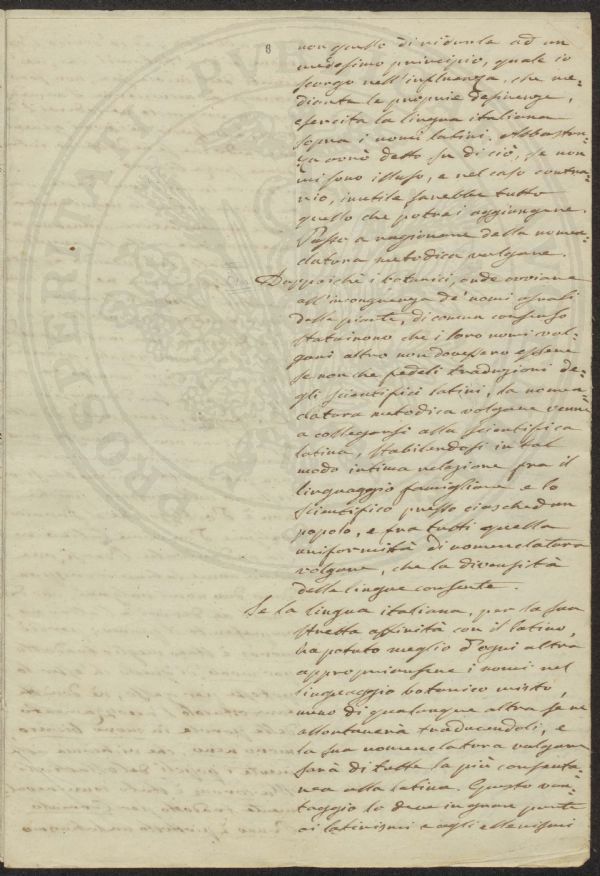 8
non quello di ridurle ad un
medesimo principio, quale io
scorgo nell'influenza, che me=
diante le proprie desinenze,
esercita la lingua italiana
sopra i nomi latini. Abbastan=
za avrò detto su di ciò, se non
mi sono illuso, e nel caso contra=
rio, inutile sarebbe tutto
quello che potrei aggiungere.
Passo a ragionare della nomen=
clatura metodica volgare.
Dappoichè i botanici, onde ovviare
all'incongruenza de' nomi usuali
delle piante, di comun consenso
statuirono che i loro nomi vol=
gari altro non dovessero essere
se non che fedeli traduzioni de=
gli scientifici latini, la nomen=
clatura metodica volgare venne
a collegarsi alla scientifica
latina, stabilendosi in tal
modo intima relazione fra il
linguaggio famigliare e lo
scientifico presso ciaschedun
popolo, e fra tutti quella
uniformità di nomenclatura
volgare, che la diversità
delle lingue consente.
Se la lingua italiana, per la sua
stretta affinità con il latino,
ha potuto meglio d'ogni altra
appropriarsene i nomi nel
linguaggio botanico misto,
meno di qualunque altra se ne
allontanerà traducendoli, e
la sua nomenclatura volgare
sarà di tutte la più consenta=
nea alla latina. Questo van=
taggio lo deve in gran parte
ai latinismi e agli ellenismi
PROSPERITATI PVB